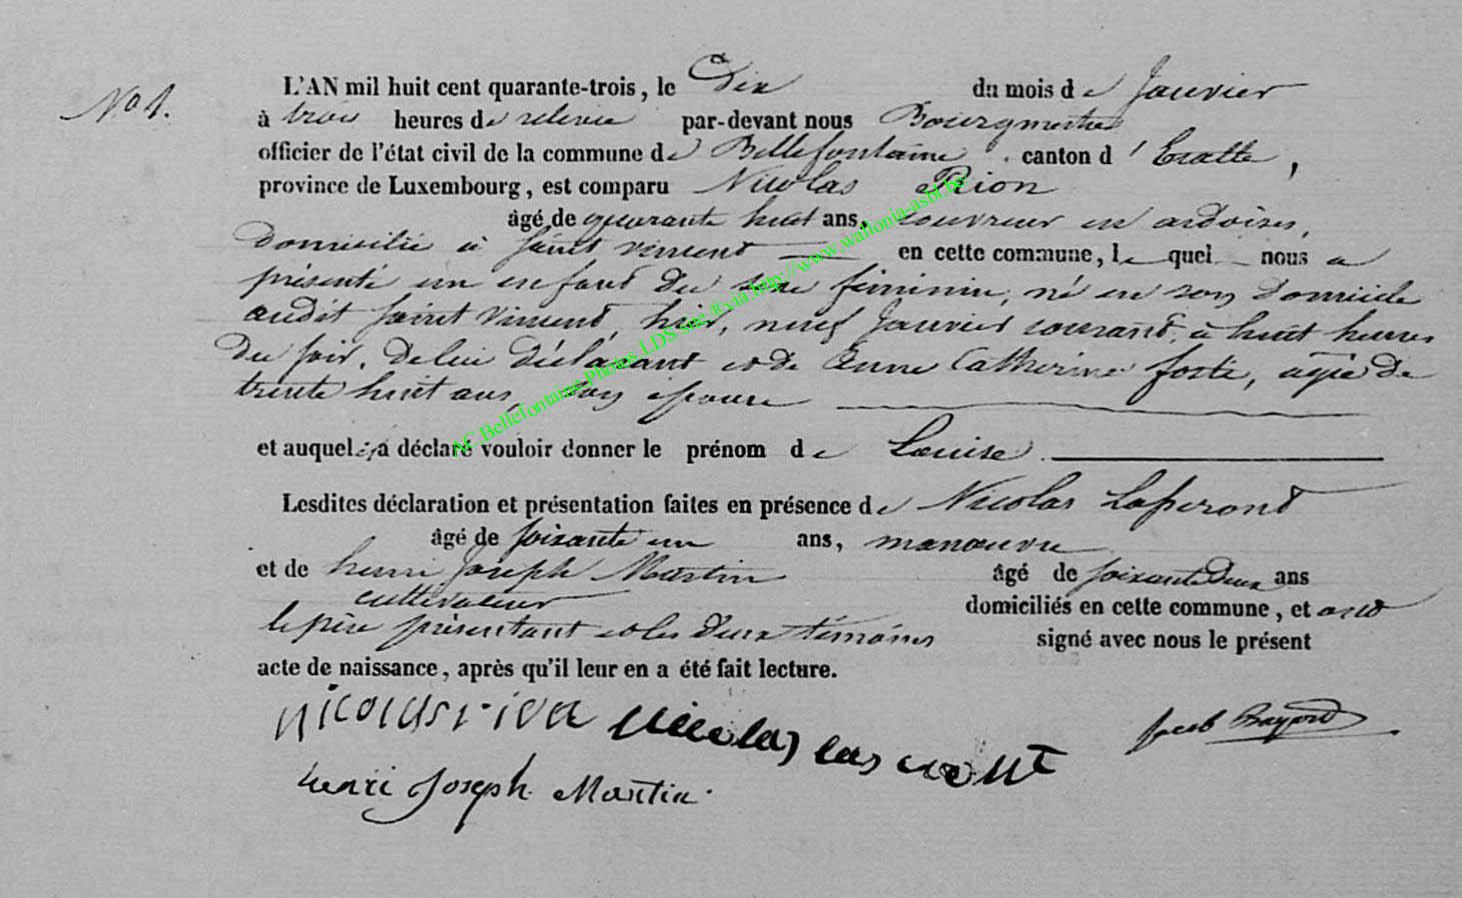 No 1.
L'AN mil huit cent quarante-trois, le Dix du mois de Janvier
à trois heures de relevée par-devant nous Bourgmestre
officier de l'état civil de la commune de Bellefontaine canton d'Etalle,
province de Luxembourg, est comparu Nicolas Rion
âgé de quarante huit ans, couvreur en ardoises,
domicilié à saint vincent en cette commune, le quel nous a
présenté un enfant du sexe féminin, né en son domicile
audit saint vincent, hier, neuf Janvier courant, à huit heures
du soir, de lui déclarant et de Anne Catherine fosté, agée de
trente huit ans, son épouse
et auquel il a déclaré vouloir donner le prénom de Louise
Lesdites déclaration et présentation faites en présence de Nicolas
âgé de soixante un ans, manœuvre
et de henri Joseph Martin âgé de soixante deux ans
cultivateur domiciliés en cette commune, et ont
le père présentant et les deux témoins signé avec nous le présent
acte de naissance, après qu'il leur en a été fait lecture.
nicolas rion nicolas
henri Joseph Martin
AC Bellefontaine Photos LDS via http://www.wallonia-asbl.be/